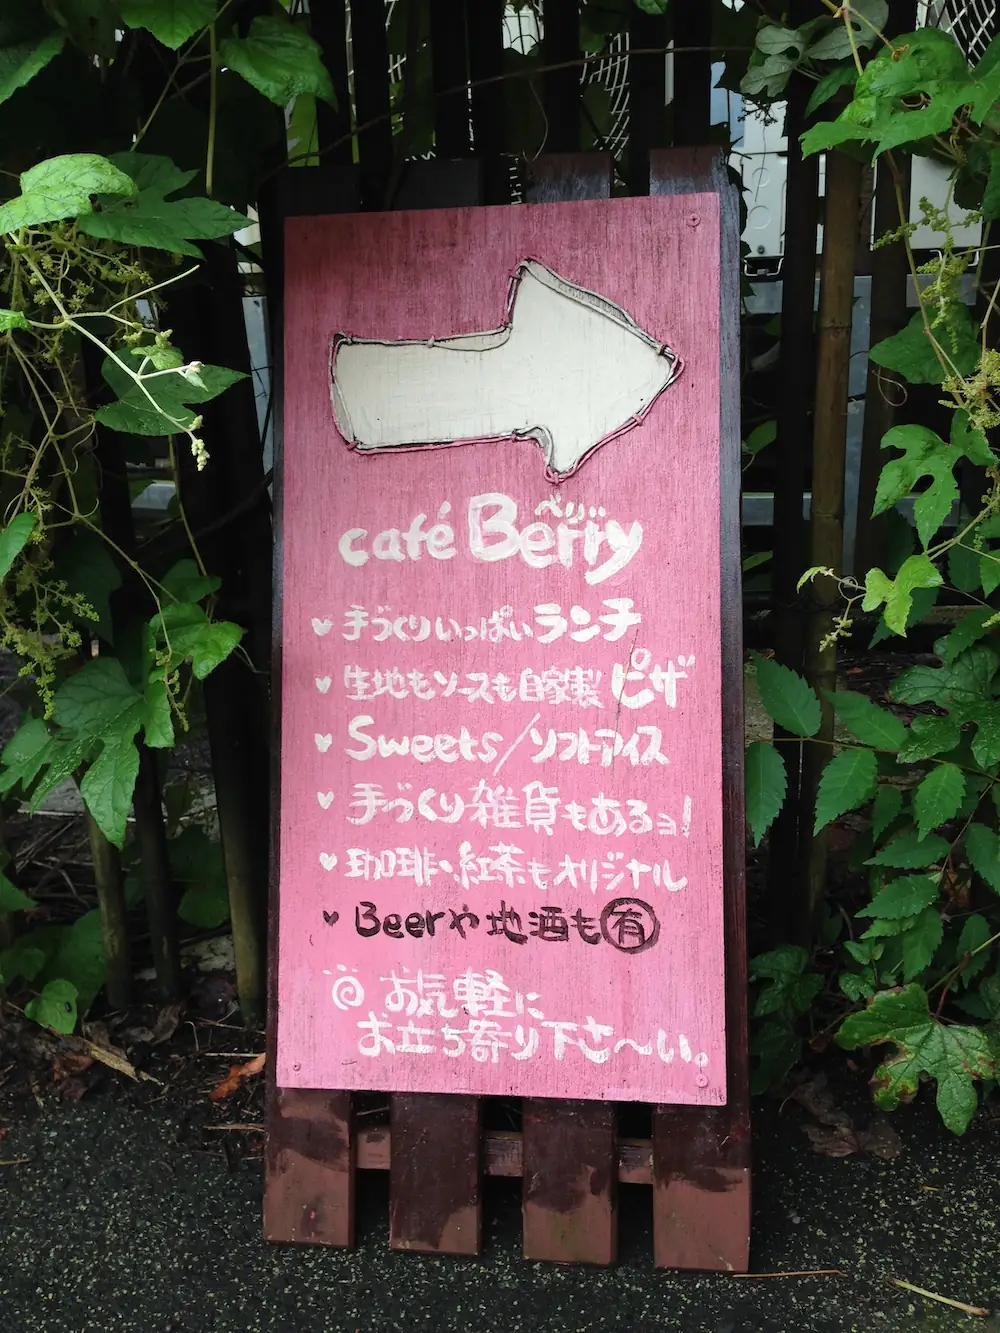 café Berry
べりぃ
手づくりいっぱいランチ
生地もソースも自家製ピザ
Sweets/ソフトアイス
手づくり雑貨もあるョ!
珈琲、紅茶もオリジナル
Beerや地酒も㊒
お気軽に
お立ち寄り下さ〜い。